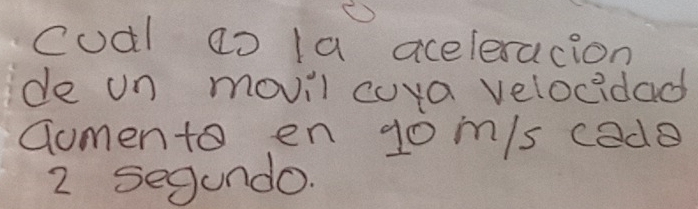 Cual es la aceleracion
de un movil cuya velocidad
aumenta en 10 m/s cada
2 segundo.